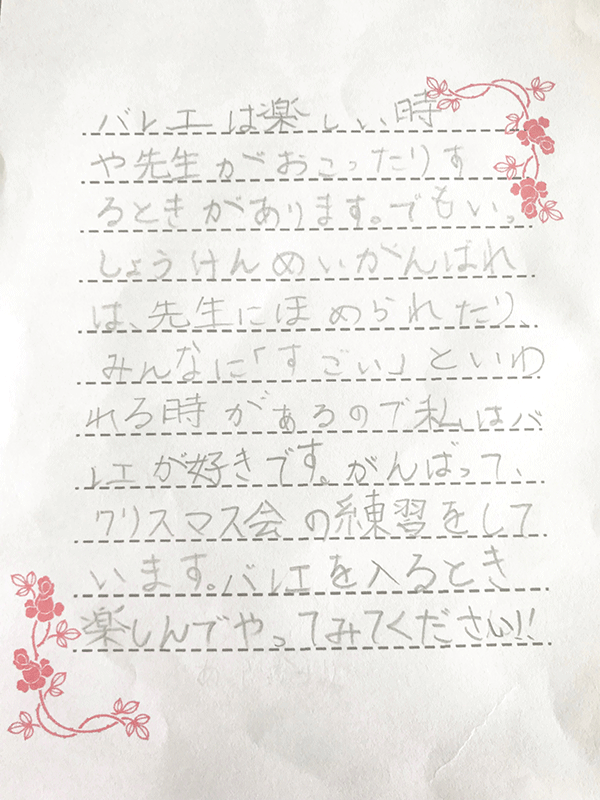 バレエは楽しい時
や先生がおこったりす
るときがあります。でもいっ
しょうけんめいがんばれ
は、先生にほめられたり、
みんなに「すごい」といわ
れる時があるので私はバ
レエが好きです。がんばって、
クリスマス会の練習をして
います。バレエを入るとき
楽しんでやってみてください!!